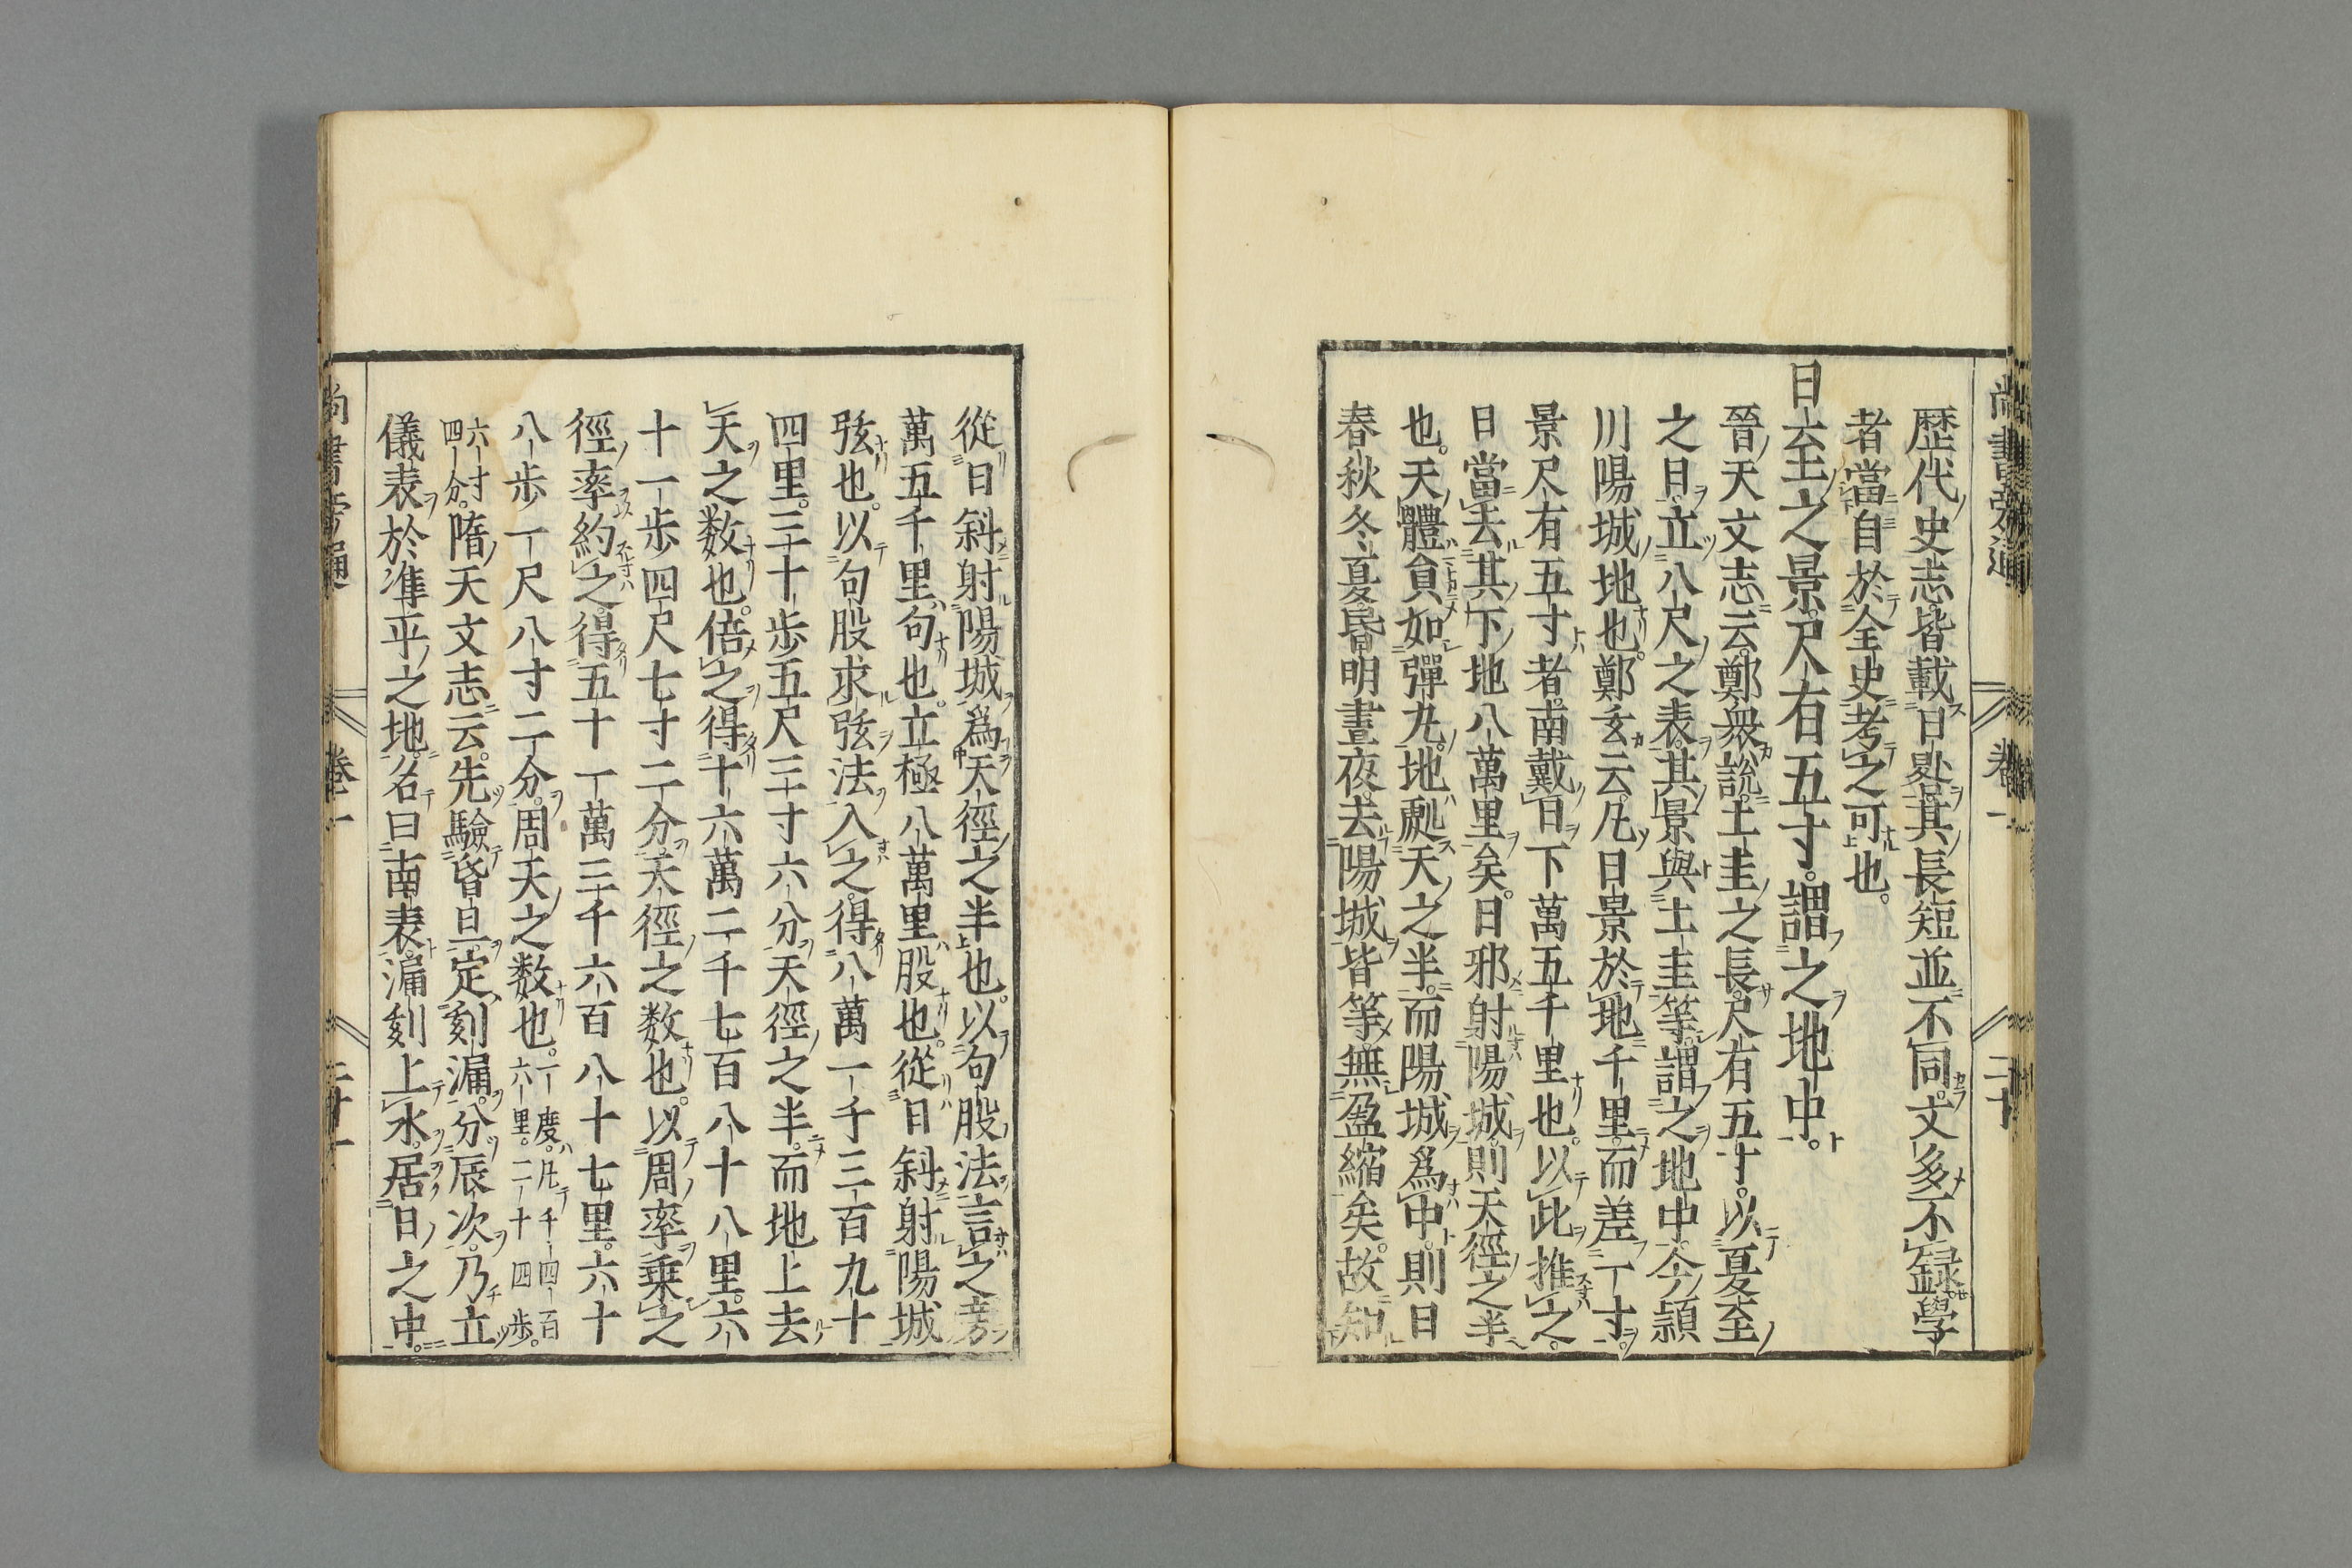 歴代史志皆載日晷其長短並不同文多不録學
者當自於全史考之可也。
日至之景尺有五寸。謂之地中。
晉天文志云鄭衆說土圭之長尺有五寸。以夏至
之日立八尺之表其景與土圭等謂之地中今潁
川陽城地也。鄭玄云凡日景於地千里而差一寸。
景尺有五寸者南戴日下萬五千里也。以此推之。
日當去其下地八萬里矣。日邪射陽城則天徑之半
也。天體貟如彈丸。地處天之半。而陽城爲中則日
春秋冬夏昬明晝夜去陽城皆等無盈縮矣故知
從日斜射陽城爲天徑之半也。以句股法言之旁
萬五千里句也。立極八萬里股也。從日斜射陽城
弦也。以句股求弦法入之得八萬一千三百九十
四里。三十歩五尺三寸六分天徑之半。而地上去
天之数也。倍之得十六萬二千七百八十八里。六
十一歩四尺七寸二分天徑之数也。以周率乗之
徑率約之得五十一萬三千六百八十七里。六十
八歩一尺八寸二分。周天之数也。一度。凡千四百
六里。二十四歩。
六寸
四分。隋天文志云。先驗昏旦定刻漏。分辰次。乃立
儀表於準平之地。名曰南表漏刻上水。居日之中。
尚書旁通 卷一 二十
尚書旁通 卷一